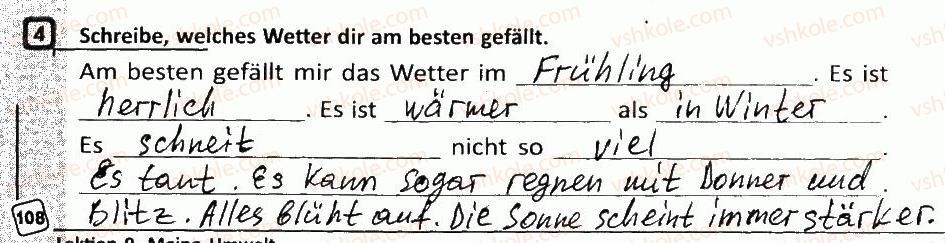 4 Schreibe, welches Wetter dir am besten gefällt.
Am besten gefällt mir das Wetter im Frühling. Es ist
herrlich. Es ist wärmer als in Winter.
Es schneit nicht so viel.
Es taut. Es kann sogar regnen mit Donner und
Blitz. Alles blüht auf. Die Sonne scheint immer stärker.
108
Lektion 9. Meine Umwelt
vshkole.com